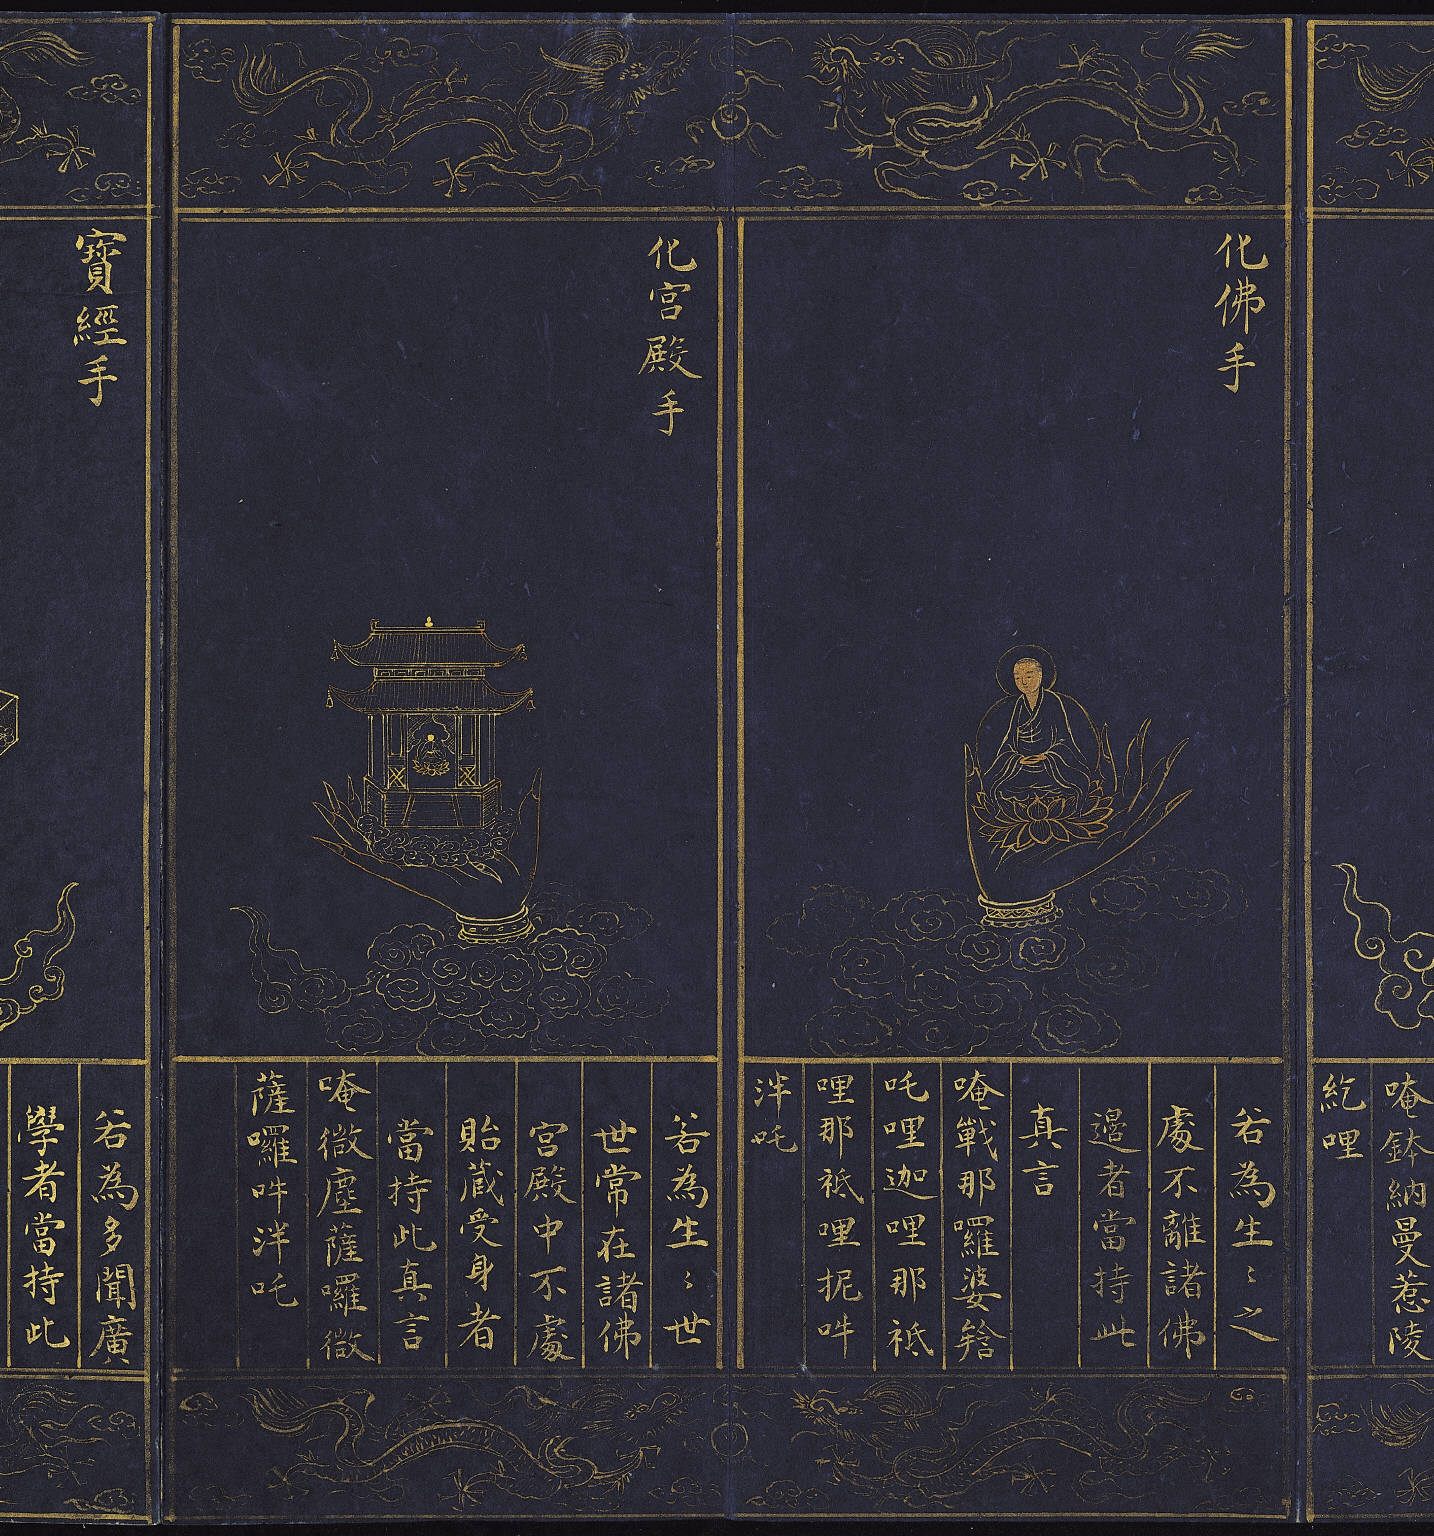 唵鉢納曼惹陵
紇哩
化佛手
若為生〻之
處不離諸佛
邊者當持此
真言
唵戰那囉婆𤚥
吒哩迦哩那祇
哩那祇哩抳吽
泮吒
化宮殿手
若為生〻世
世常在諸佛
宮殿中不處
胎藏受身者
當持此真言
唵微塵薩囉微
薩囉吽泮吒
寶經手
若為多聞廣
學者當持此